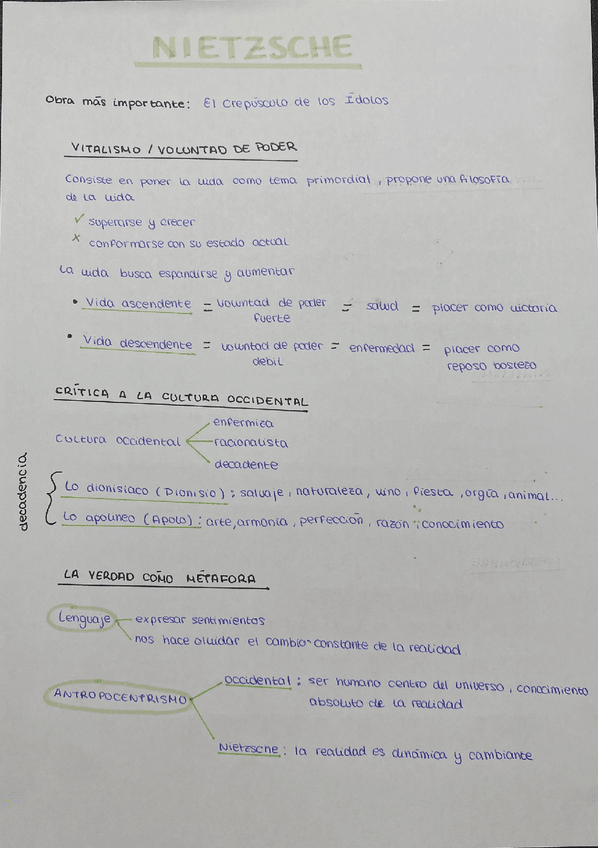 NIETZSCHE
Obra más importante: El Crepúsculo de los Ídolos
VITALISMO / VOLUNTAD DE PODER
Consiste en poner la vida como tema primordial, propone una filosofía
de la vida
✓ superarse y crecer
x conformarse con su estado actual
La vida busca espandirse y aumentar
• Vida ascendente = voluntad de poder = salud = placer como victoria
fuerte
• Vida descendente = voluntad de poder = enfermedad = placer como
debil reposo bostezo
CRÍTICA A LA CULTURA OCCIDENTAL
enfermiza
Cultura occidental racionalista
decadente
decadencia
Lo dionisiaco (Dionisio): salvaje, naturaleza, vino, fiesta, orgía, animal...
Lo apolineo (Apolo): arte, armonía, perfección, razón, conocimiento
LA VERDAD COMO MÉTAFORA
Lenguaje expresar sentimientos
nos hace olvidar el cambio constante de la realidad
Occidental: ser humano centro del universo, conocimiento
ANTROPOCENTRISMO absoluto de la realidad
Nietzsche: la realidad es dinámica y cambiante